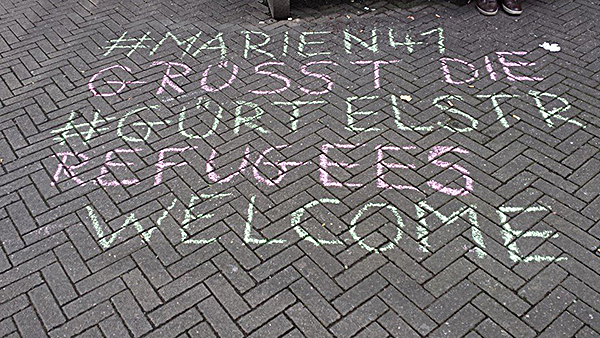 #MARIEN41
GRÖSST DIE
#GÜRTELSTR
REFUGEES
WELCOME